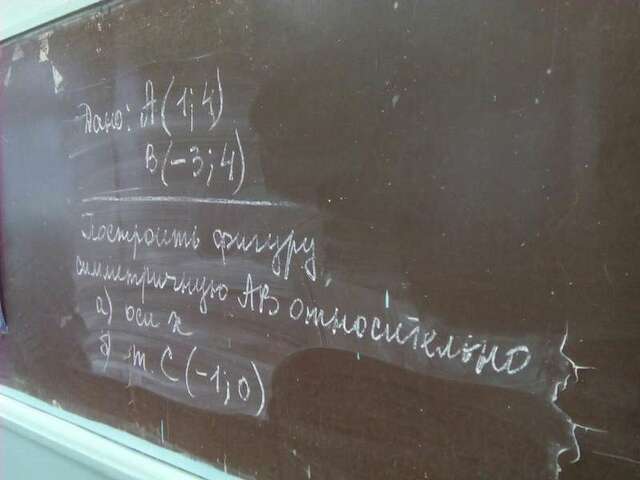 Дано: А(1;4)
В(-3;4)
Построить фигуру,
симметричную АВ относительно
а) оси х
б) т. С (-1;0)